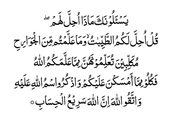 يَسْـَٔلُونَكَ مَاذَآ أُحِلَّ لَهُمْ ۖ
قُلْ أُحِلَّ لَكُمُ الطَّيِّبَٰتُ وَمَا عَلَّمْتُم مِّنَ الْجَوَارِحِ
مُكَلِّبِينَ تُعَلِّمُونَهُنَّ مِمَّا عَلَّمَكُمُ اللَّهُ
فَكُلُوا مِمَّآ أَمْسَكْنَ عَلَيْكُمْ وَاذْكُرُوا اسْمَ اللَّهِ عَلَيْهِ
وَاتَّقُوا اللَّهَ إِنَّ اللَّهَ سَرِيعُ الْحِسَابِ